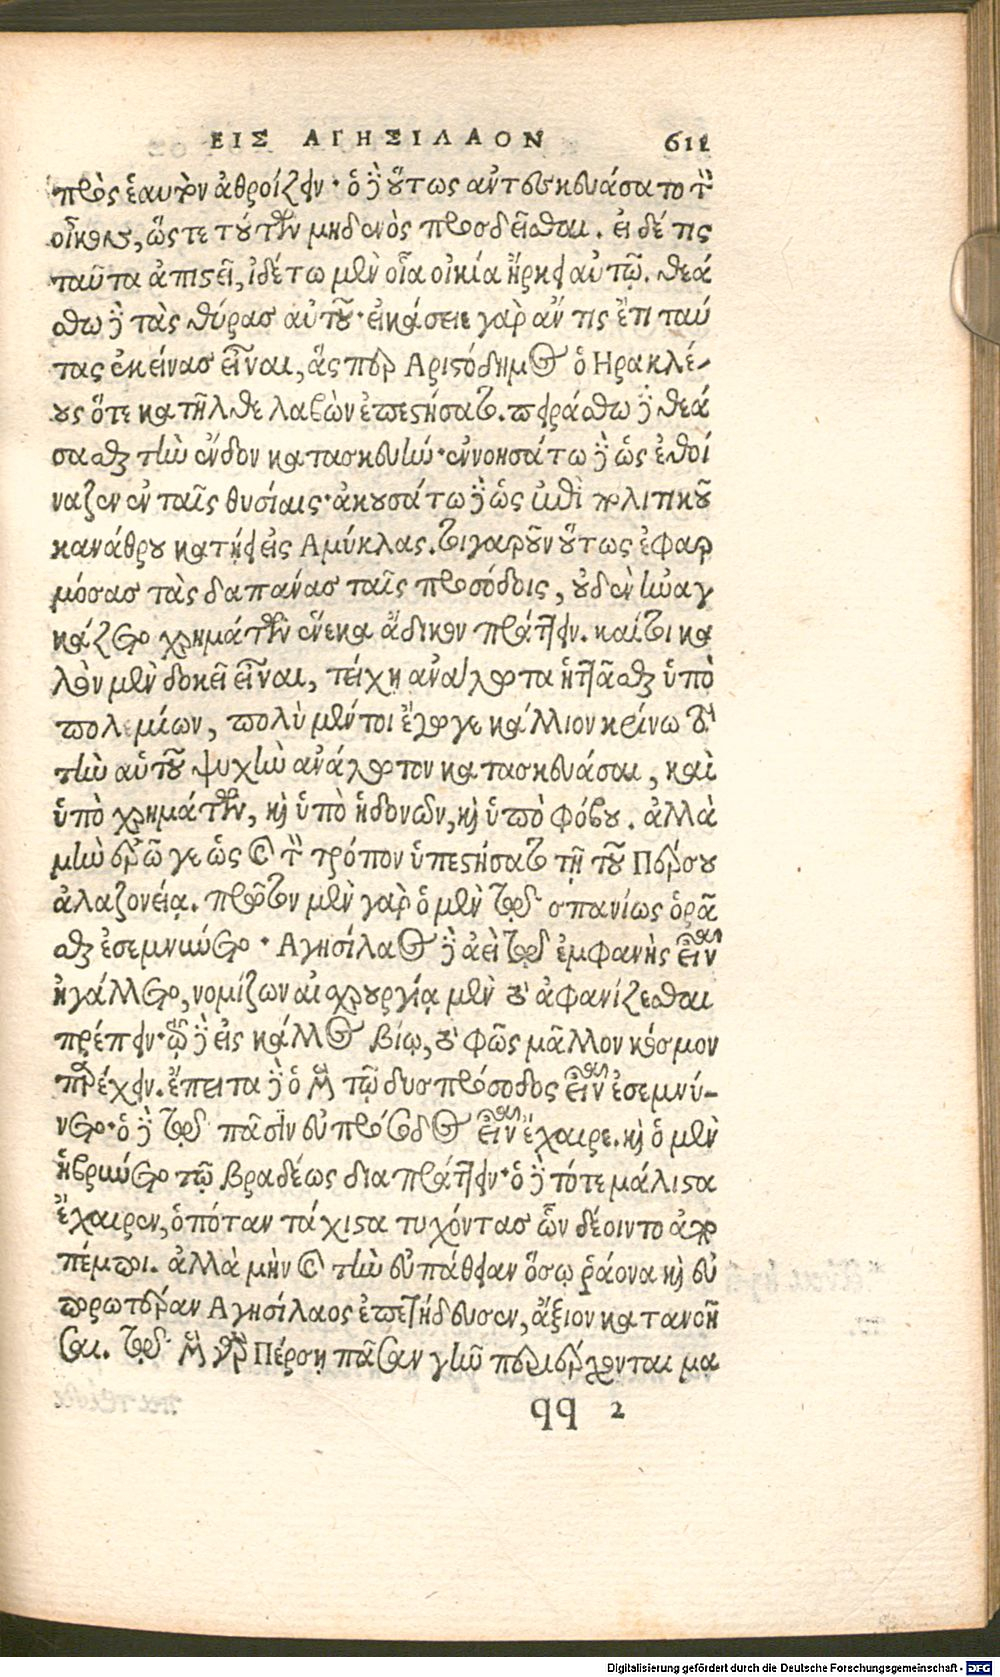 ΕΙΣ ΑΓΗΣΙΛΑΟΝ 611
πρὸς ἑαυτὸν ἀθροίζειν· ὁ δὲ οὕτως ἀντεσκευάσατο τὸν
οἶκον, ὥστε τούτων μηδενὸς προσδεῖσθαι. εἰ δέ τις
ταῦτα ἀπιστεῖ, ἰδέτω μὲν οἵα οἰκία ἤρκει αὐτῷ. θεά
σθω δὲ τὰς θύρας αὐτοῦ· εἰκάσειε γὰρ ἄν τις ἔτι ταύ
τας ἐκείνας εἶναι, ἅς περ Αριστόδημος ὁ Ηρακλέ-
ους ὅτε κατῆλθε λαβὼν ἐπεστήσατο. πειράσθω δὲ θεά
σασθαι τὴν ἔνδον κατασκευήν· ἐννοησάτω δὲ ὡς ἐθοί
ναζεν ἐν ταῖς θυσίαις· ἀκουσάτω δὲ ὡς ἐπὶ πολιτικοῦ
κανάθρου κατῄει εἰς Αμύκλας. τοιγαροῦν οὕτως ἐφαρ
μόσας τὰς δαπάνας ταῖς προσόδοις, οὐδὲν ἠναγ
κάζετο χρημάτων ἕνεκα ἄδικον πράττειν. καίτοι κα
λὸν μὲν δοκεῖ εἶναι, τείχη ἀνάλωτα κτᾶσθαι ὑπὸ
πολεμίων, πολὺ μέντοι ἔγωγε κάλλιον κρίνω τὸ
τὴν αὑτοῦ ψυχὴν ἀνάλωτον κατασκευάσαι, καὶ
ὑπὸ χρημάτων, καὶ ὑπὸ ἡδονῶν, καὶ ὑπὸ φόβου. ἀλλὰ
μὴν ἐρῶ γε ὡς καὶ τὸν τρόπον ὑπεστήσατο τῇ τοῦ Πέρσου
ἀλαζονείᾳ. πρῶτον μὲν γὰρ ὁ μὲν τῷ σπανίως ὁρᾶ
σθαι ἐσεμνύνετο· Αγησίλαος δὲ ἀεὶ τῷ ἐμφανὴς εἶναι
ἠγάλλετο, νομίζων αἰσχρουργίᾳ μὲν τὸ ἀφανίζεσθαι
πρέπειν· τῷ δὲ εἰς κάλλος βίῳ, τὸ φῶς μᾶλλον κόσμον
παρέχειν. ἔπειτα δὲ ὁ μὲν τῷ δυσπρόσοδος εἶναι ἐσεμνύ-
νετο· ὁ δὲ τῷ πᾶσιν εὐπρόσοδος εἶναι ἔχαιρε. καὶ ὁ μὲν
ἡβρύνετο τῷ βραδέως διαπράττειν· ὁ δὲ τότε μάλιστα
ἔχαιρεν, ὁπόταν τάχιστα τυχόντας ὧν δέοιντο ἀπο
πέμποι. ἀλλὰ μὴν καὶ τὴν εὐπάθειαν ὅσῳ ῥάονα καὶ εὐ
πορωτέραν Αγησίλαος ἐπετήδευσεν, ἄξιον κατανοῆ
σαι. τῷ μὲν γὰρ Πέρσῃ πᾶσαν γῆν περιέρχονται μα
qq 2
Digitalisierung gefördert durch die Deutsche Forschungsgemeinschaft - DFG